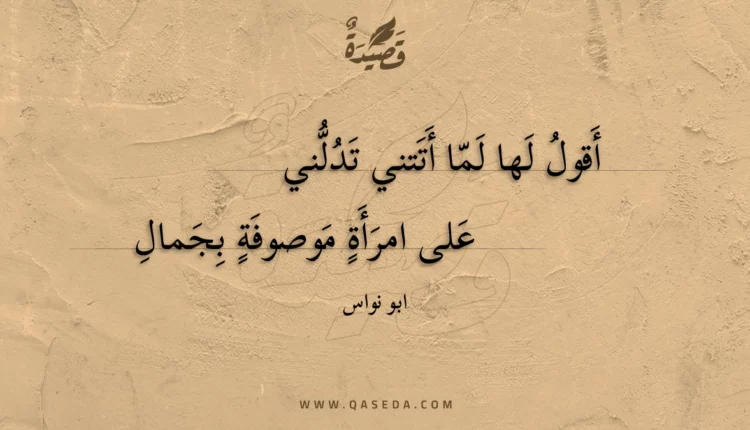 قَصِيدَةٌ
أَقولُ لَها لَمّا أَتَتني تَدُلُّني
عَلى امرَأَةٍ مَوصوفَةٍ بِجَمالِ
ابو نواس
WWW.QASEDA.COM